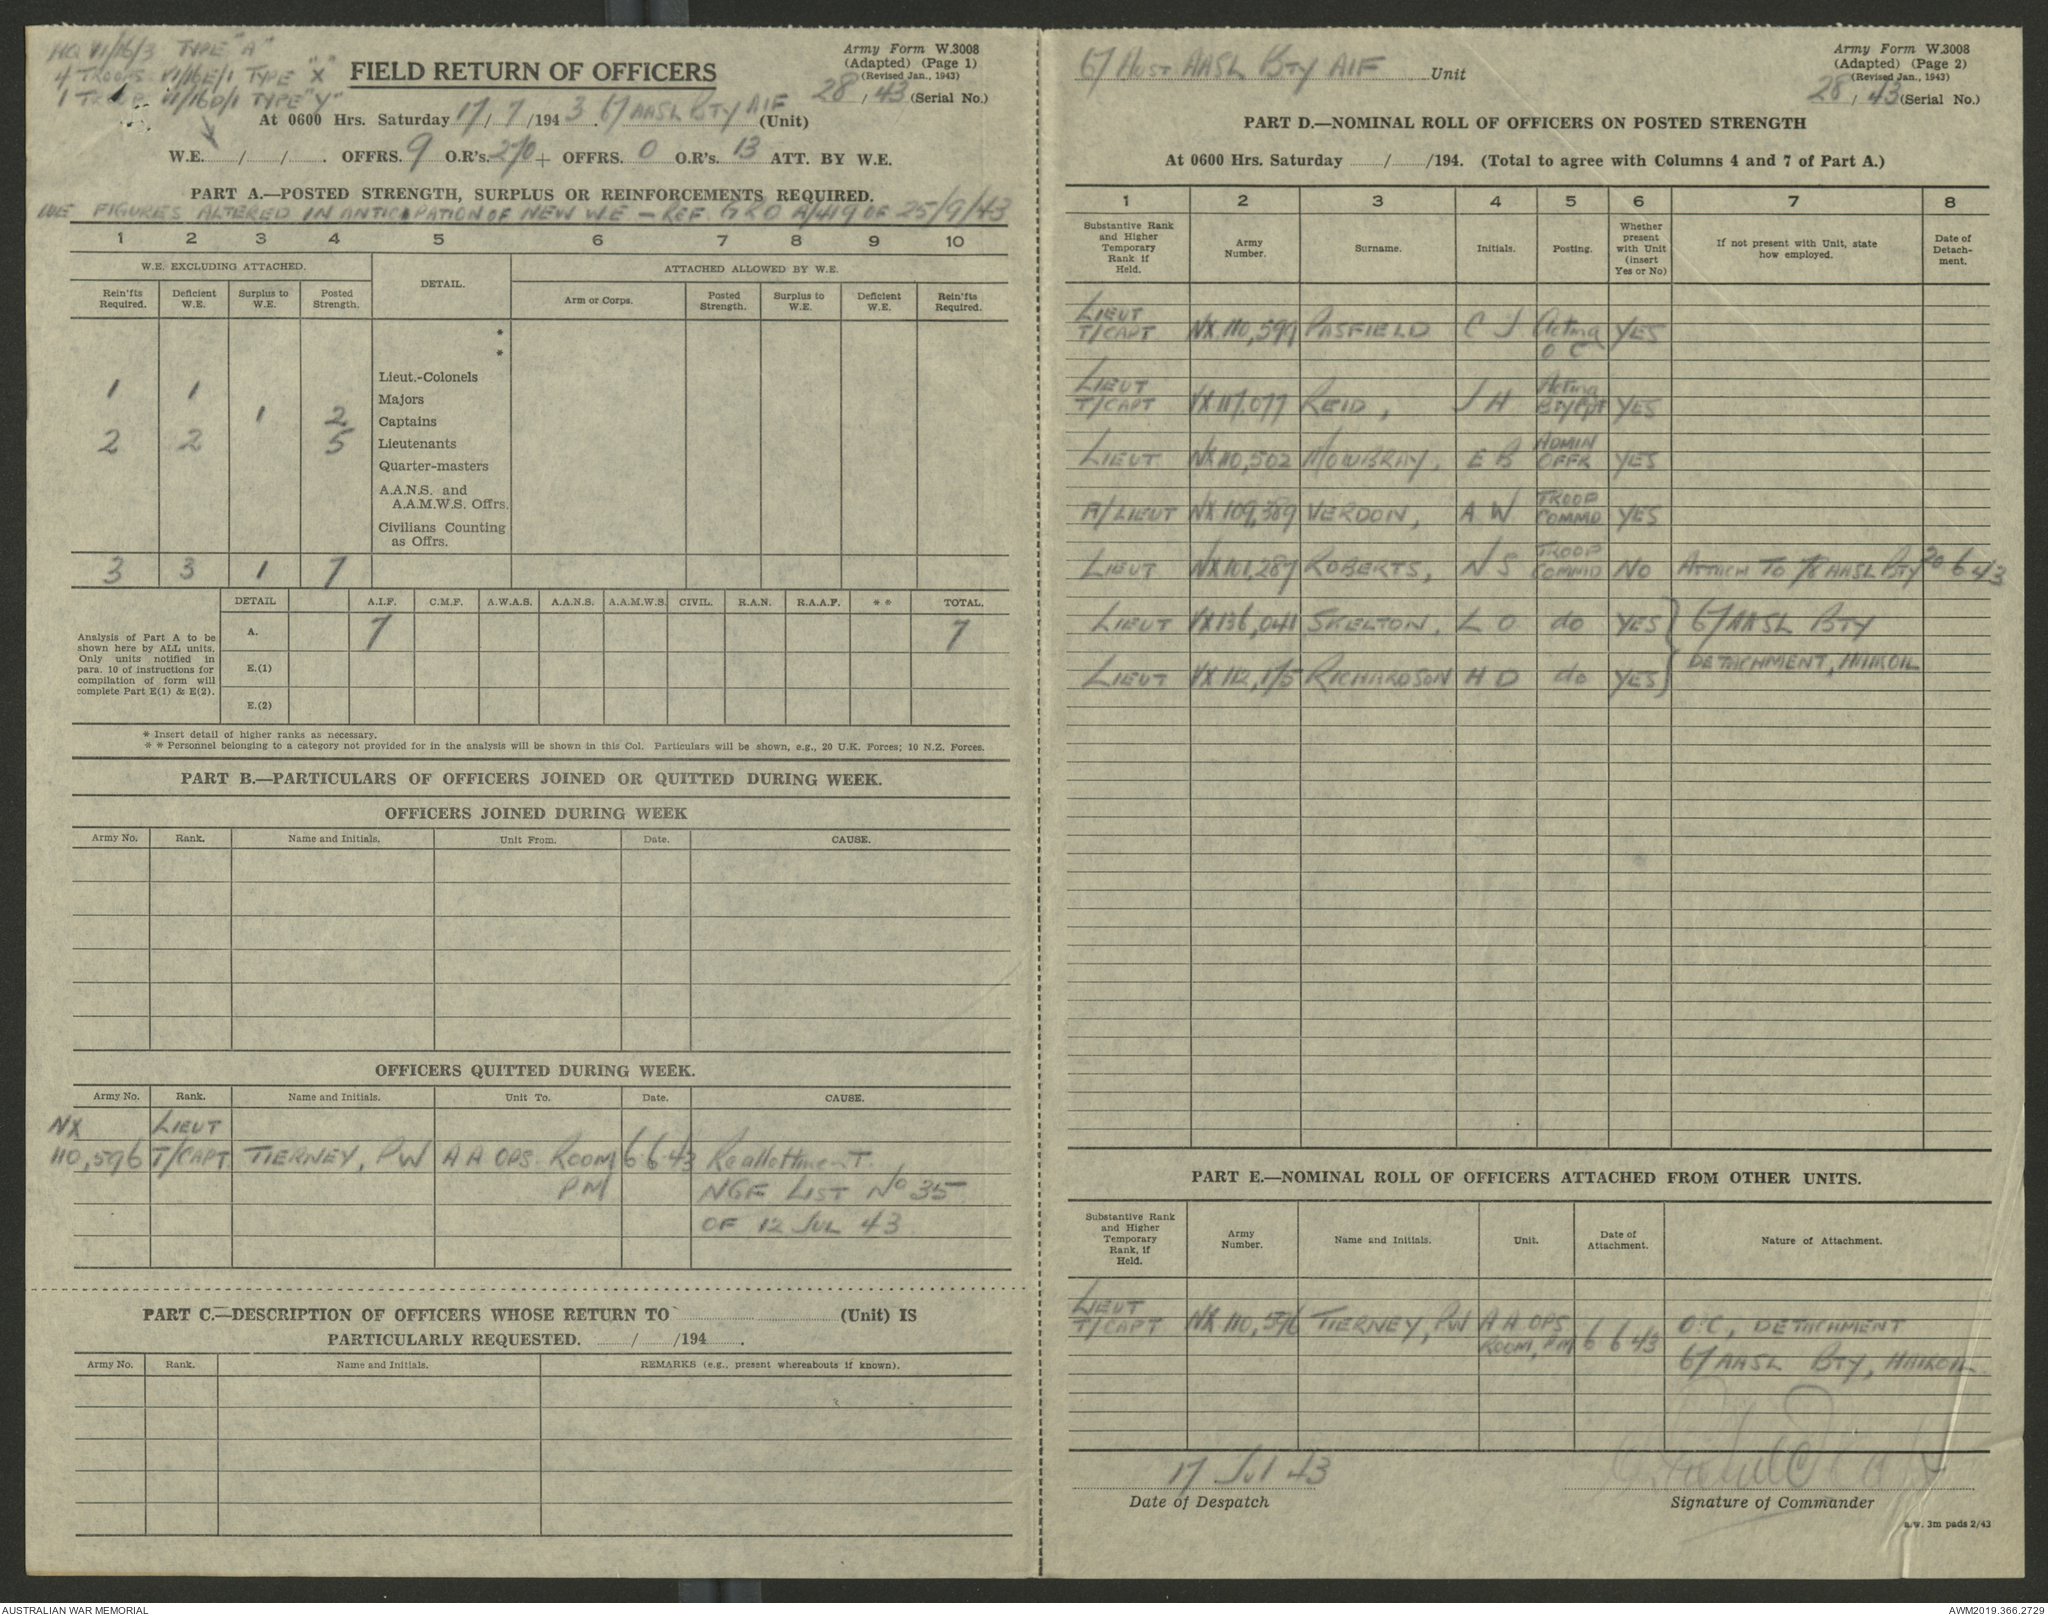 HQ VI/16/3 TYPE "A"
4 TROOPS VI/16E/1 TYPE "X"
1 TROOP VI/16D/1 TYPE "Y"
FIELD RETURN OF OFFICERS
Army Form W.3008
(Adapted) (Page 1)
(Revised Jan., 1943)
28 / 43 (Serial No.)
At 0600 Hrs. Saturday 17/7/1943. 67 AASL BTY AIF (Unit)
W.E. / / . OFFRS. 9 O.R's. 270 + OFFRS. 0 O.R's. 13 ATT. BY W.E.
PART A.—POSTED STRENGTH, SURPLUS OR REINFORCEMENTS REQUIRED.
WE FIGURES ALTERED IN ANTICIPATION OF NEW W.E — REF. GRO A/419 OF 25/9/43
1 2 3 4 5 6 7 8 9 10
W.E. EXCLUDING ATTACHED. DETAIL. ATTACHED ALLOWED BY W.E.
Rein'fts Required. Deficient W.E. Surplus to W.E. Posted Strength. Arm or Corps. Posted Strength. Surplus to W.E. Deficient W.E. Rein'fts Required.
*
*
Lieut.-Colonels
1 1 Majors
1 2 Captains
2 2 5 Lieutenants
Quarter-masters
A.A.N.S. and
A.A.M.W.S. Offrs.
Civilians Counting
as Offrs.
3 3 1 7
DETAIL A.I.F. C.M.F. A.W.A.S. A.A.N.S. A.A.M.W.S. CIVIL. R.A.N. R.A.A.F. * * TOTAL.
Analysis of Part A to be
shown here by ALL units.
Only units notified in
para. 10 of instructions for
compilation of form will
complete Part E(1) & E(2).
A. 7 7
E.(1)
E.(2)
* Insert detail of higher ranks as necessary.
* * Personnel belonging to a category not provided for in the analysis will be shown in this Col. Particulars will be shown, e.g., 20 U.K. Forces; 10 N.Z. Forces.
PART B.—PARTICULARS OF OFFICERS JOINED OR QUITTED DURING WEEK.
OFFICERS JOINED DURING WEEK
Army No. Rank. Name and Initials. Unit From. Date. CAUSE.
OFFICERS QUITTED DURING WEEK.
Army No. Rank. Name and Initials. Unit To. Date. CAUSE.
NX LIEUT
110,596 T/CAPT TIERNEY, PW A A OPS ROOM 6 6 43 Reallottment.
PM NGF LIST No 35
OF 12 JUL 43
PART C.—DESCRIPTION OF OFFICERS WHOSE RETURN TO (Unit) IS
PARTICULARLY REQUESTED. / /194 .
Army No. Rank. Name and Initials. REMARKS (e.g., present whereabouts if known).
67 AUST AASL BTY AIF Unit
Army Form W.3008
(Adapted) (Page 2)
(Revised Jan., 1943)
28 / 43 (Serial No.)
PART D.—NOMINAL ROLL OF OFFICERS ON POSTED STRENGTH
At 0600 Hrs. Saturday / /194. (Total to agree with Columns 4 and 7 of Part A.)
1 2 3 4 5 6 7 8
Substantive Rank and Higher Temporary Rank if Held. Army Number. Surname. Initials. Posting. Whether present with Unit (insert Yes or No) If not present with Unit, state how employed. Date of Detach-ment.
LIEUT
T/CAPT NX 110,599 PASFIELD C J Acting YES
O C
LIEUT Acting
T/CAPT VX 117,077 REID, J H YES
ADMIN
LIEUT NX 110,502 MOWBRAY, E B OFFR YES
TROOP
A/LIEUT NX 109,389 VERDON, A W COMMD YES
TROOP
LIEUT NX 101,287 ROBERTS, N S COMMD NO ATTACH TO 78 AASL BTY 20 6 43
LIEUT VX 136,041 SKELTON, L O do YES 67 AASL BTY
DETACHMENT, HAIROIL
LIEUT VX 112,175 RICHARDSON H D do YES
PART E.—NOMINAL ROLL OF OFFICERS ATTACHED FROM OTHER UNITS.
Substantive Rank and Higher Temporary Rank, if Held. Army Number. Name and Initials. Unit. Date of Attachment. Nature of Attachment.
LIEUT
T/CAPT NX 110,596 TIERNEY, PW A A OPS O.C, DETACHMENT
ROOM, PM 6 6 43
67 AASL BTY, HAIROIL
17 Jul 43
Date of Despatch
Signature of Commander
a.w. 3m pads 2/43
AUSTRALIAN WAR MEMORIAL
AWM2019.366.2729